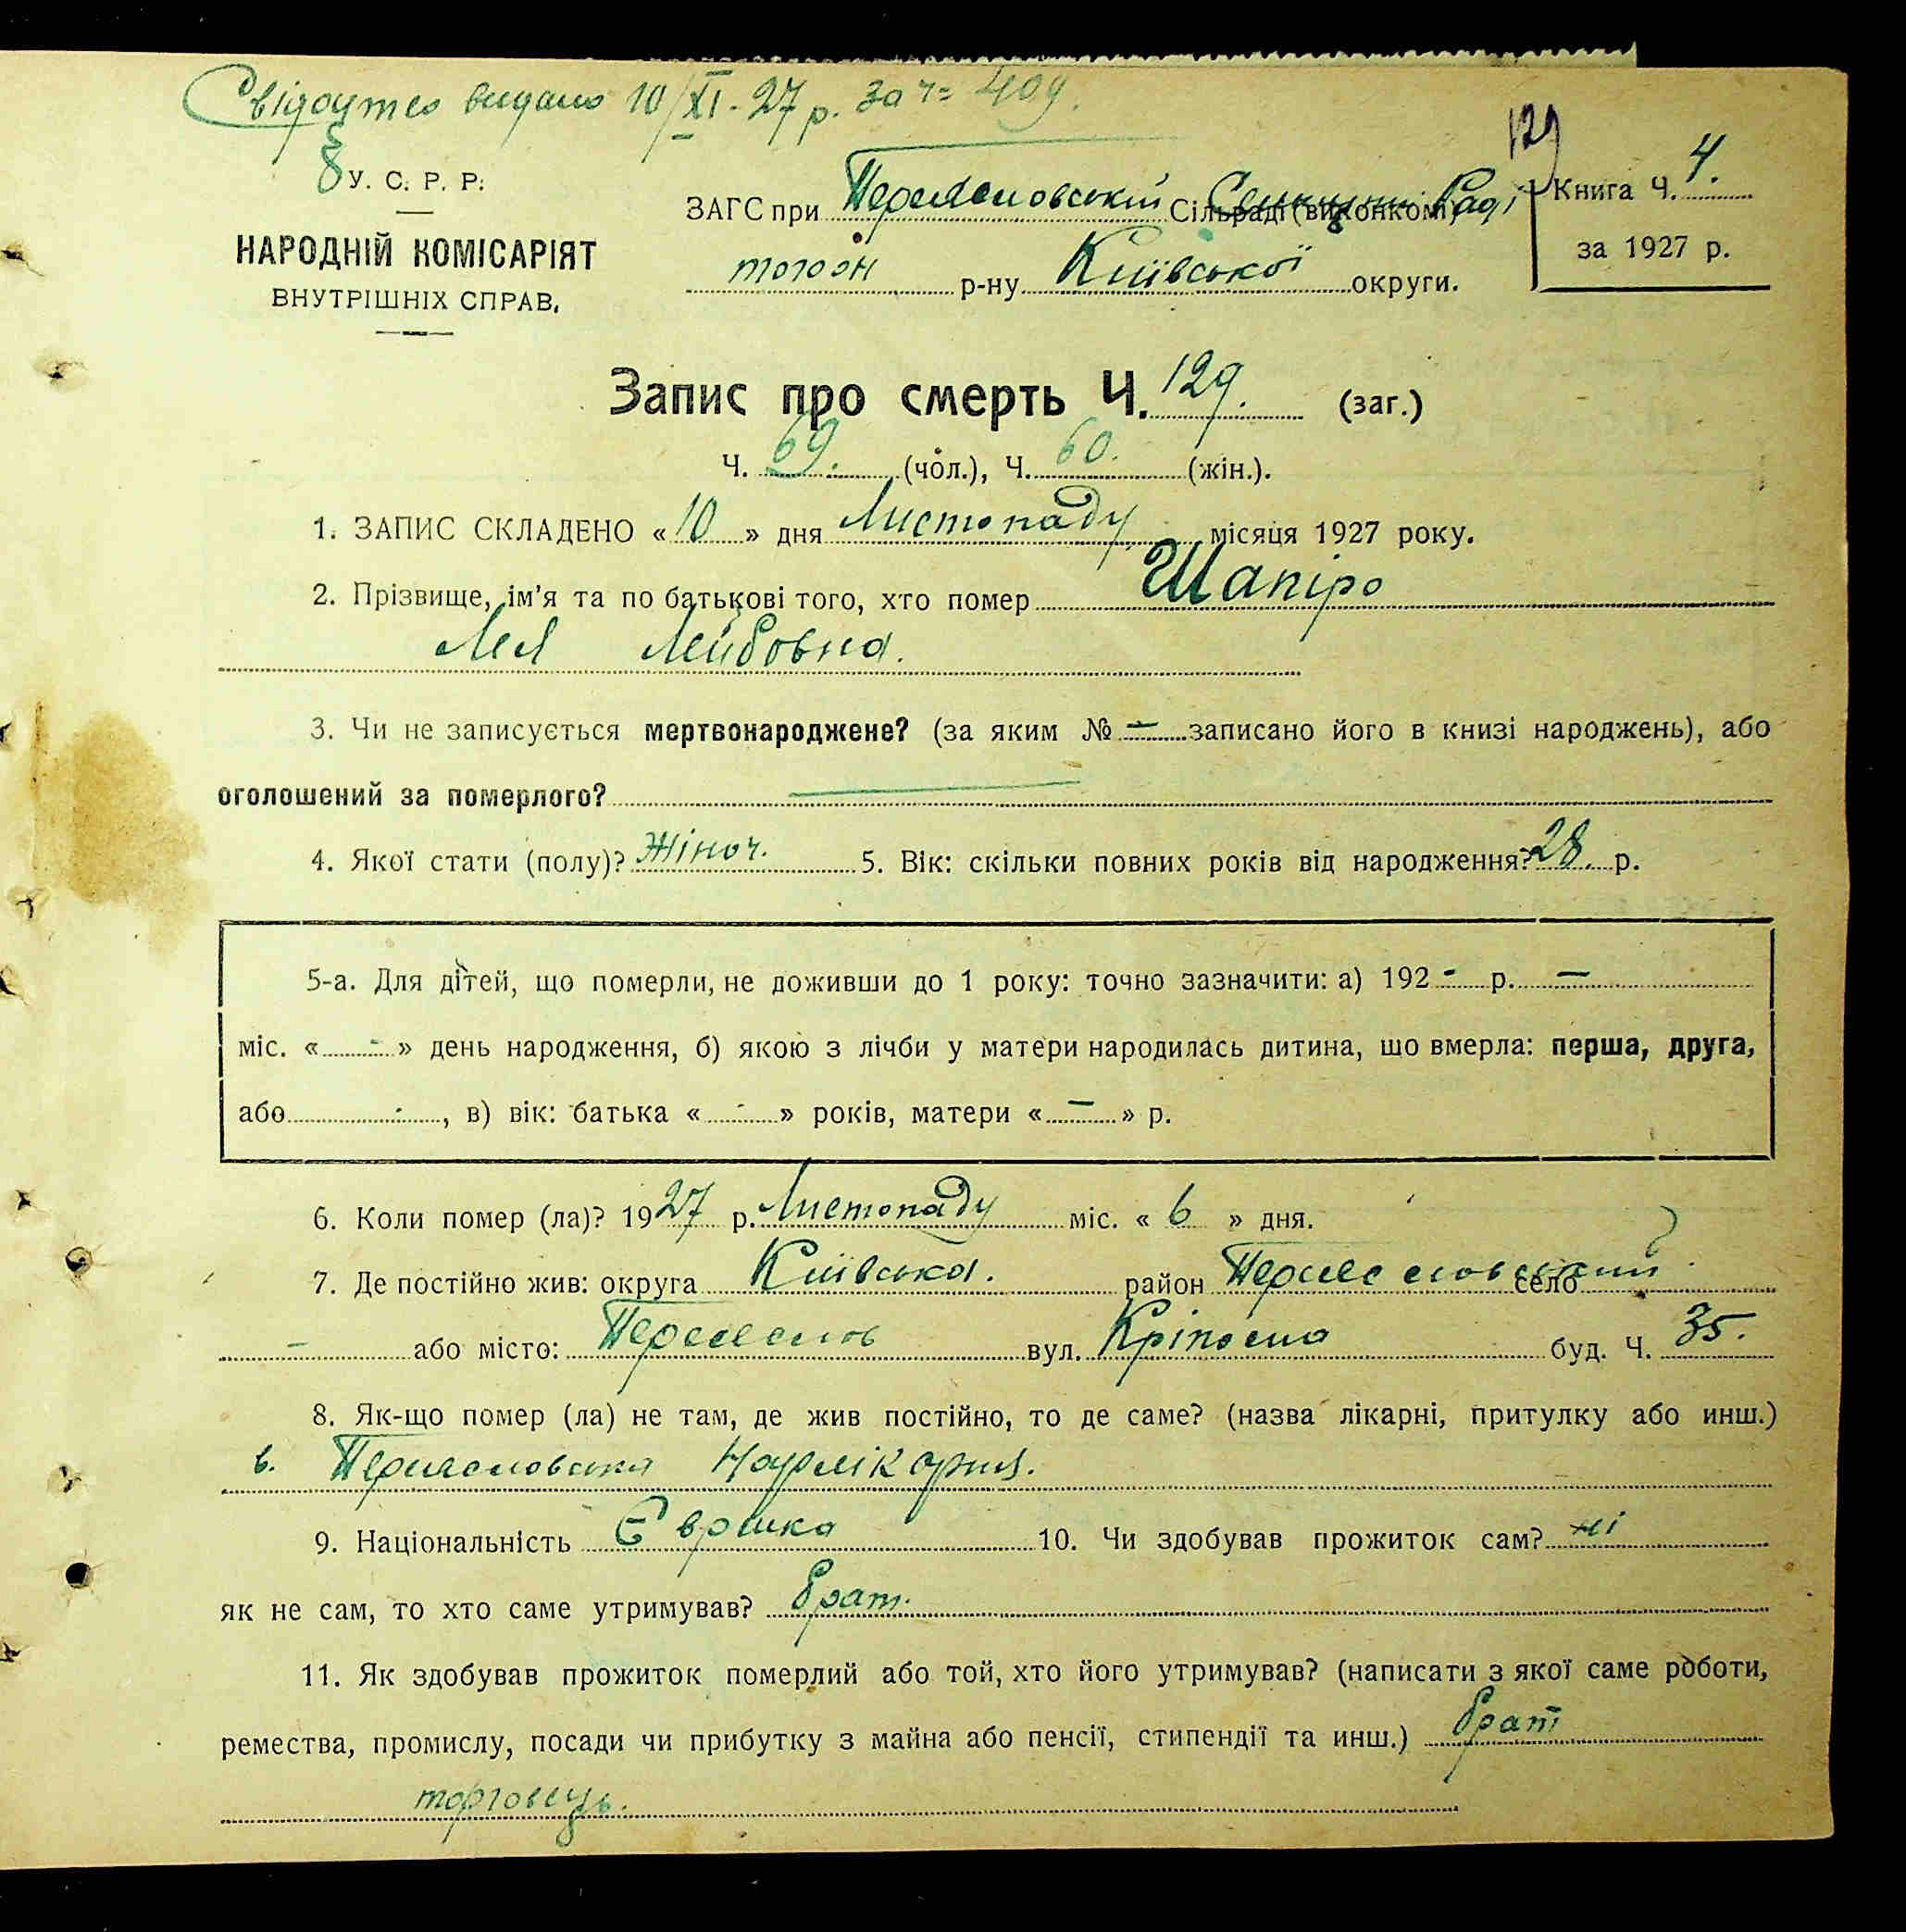 Свідоцтво видано 10/XI-27 р. за ч= 409.
129
У. С. Р. Р.
НАРОДНІЙ КОМІСАРІЯТ
ВНУТРІШНІХ СПРАВ.
ЗАГС при Переяславський Сільраді (виконкомі) Раді
того ж р-ну Київської округи.
Книга Ч. 4.
за 1927 р.
Запис про смерть Ч. 129. (заг.)
Ч. 69. (чол.), Ч. 60. (жін.).
1. ЗАПИС СКЛАДЕНО «10» дня Листопаду місяця 1927 року.
2. Прізвище, ім'я та по батькові того, хто помер Шапіро
Лея Лейбовна.
3. Чи не записується мертвонароджене? (за яким № — записано його в книзі народжень), або
оголошений за померлого? —
4. Якої стати (полу)? Жіноч. 5. Вік: скільки повних років від народження? 28. р.
5-а. Для дітей, що померли, не доживши до 1 року: точно зазначити: а) 192 - р. —
міс. « - » день народження, б) якою з лічби у матери народилась дитина, що вмерла: перша, друга,
або - , в) вік: батька « - » років, матери « — » р.
6. Коли помер (ла)? 1927 р. Листопаду міс. « 6 » дня.
7. Де постійно жив: округа Київська. район Переяславський село
— або місто: Переяслов вул. Кріпосна буд. Ч. 35.
8. Як-що помер (ла) не там, де жив постійно, то де саме? (назва лікарні, притулку або инш.)
в. Переясловська Нарлікарня.
9. Національність Єврейка 10. Чи здобував прожиток сам? ні
як не сам, то хто саме утримував? брат.
11. Як здобував прожиток померлий або той, хто його утримував? (написати з якої саме роботи,
ремества, промислу, посади чи прибутку з майна або пенсії, стипендії та инш.) брат
торговець.